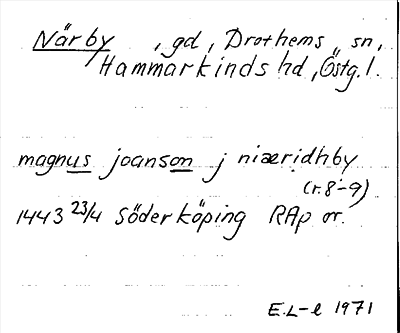 Närby, gd, Drothems sn,
Hammarkinds hd, Östg.l.
magnus joanson j niæridhby
(r.8-9)
1443 23/4 Söderköping RAp or.
E.L-l 1971